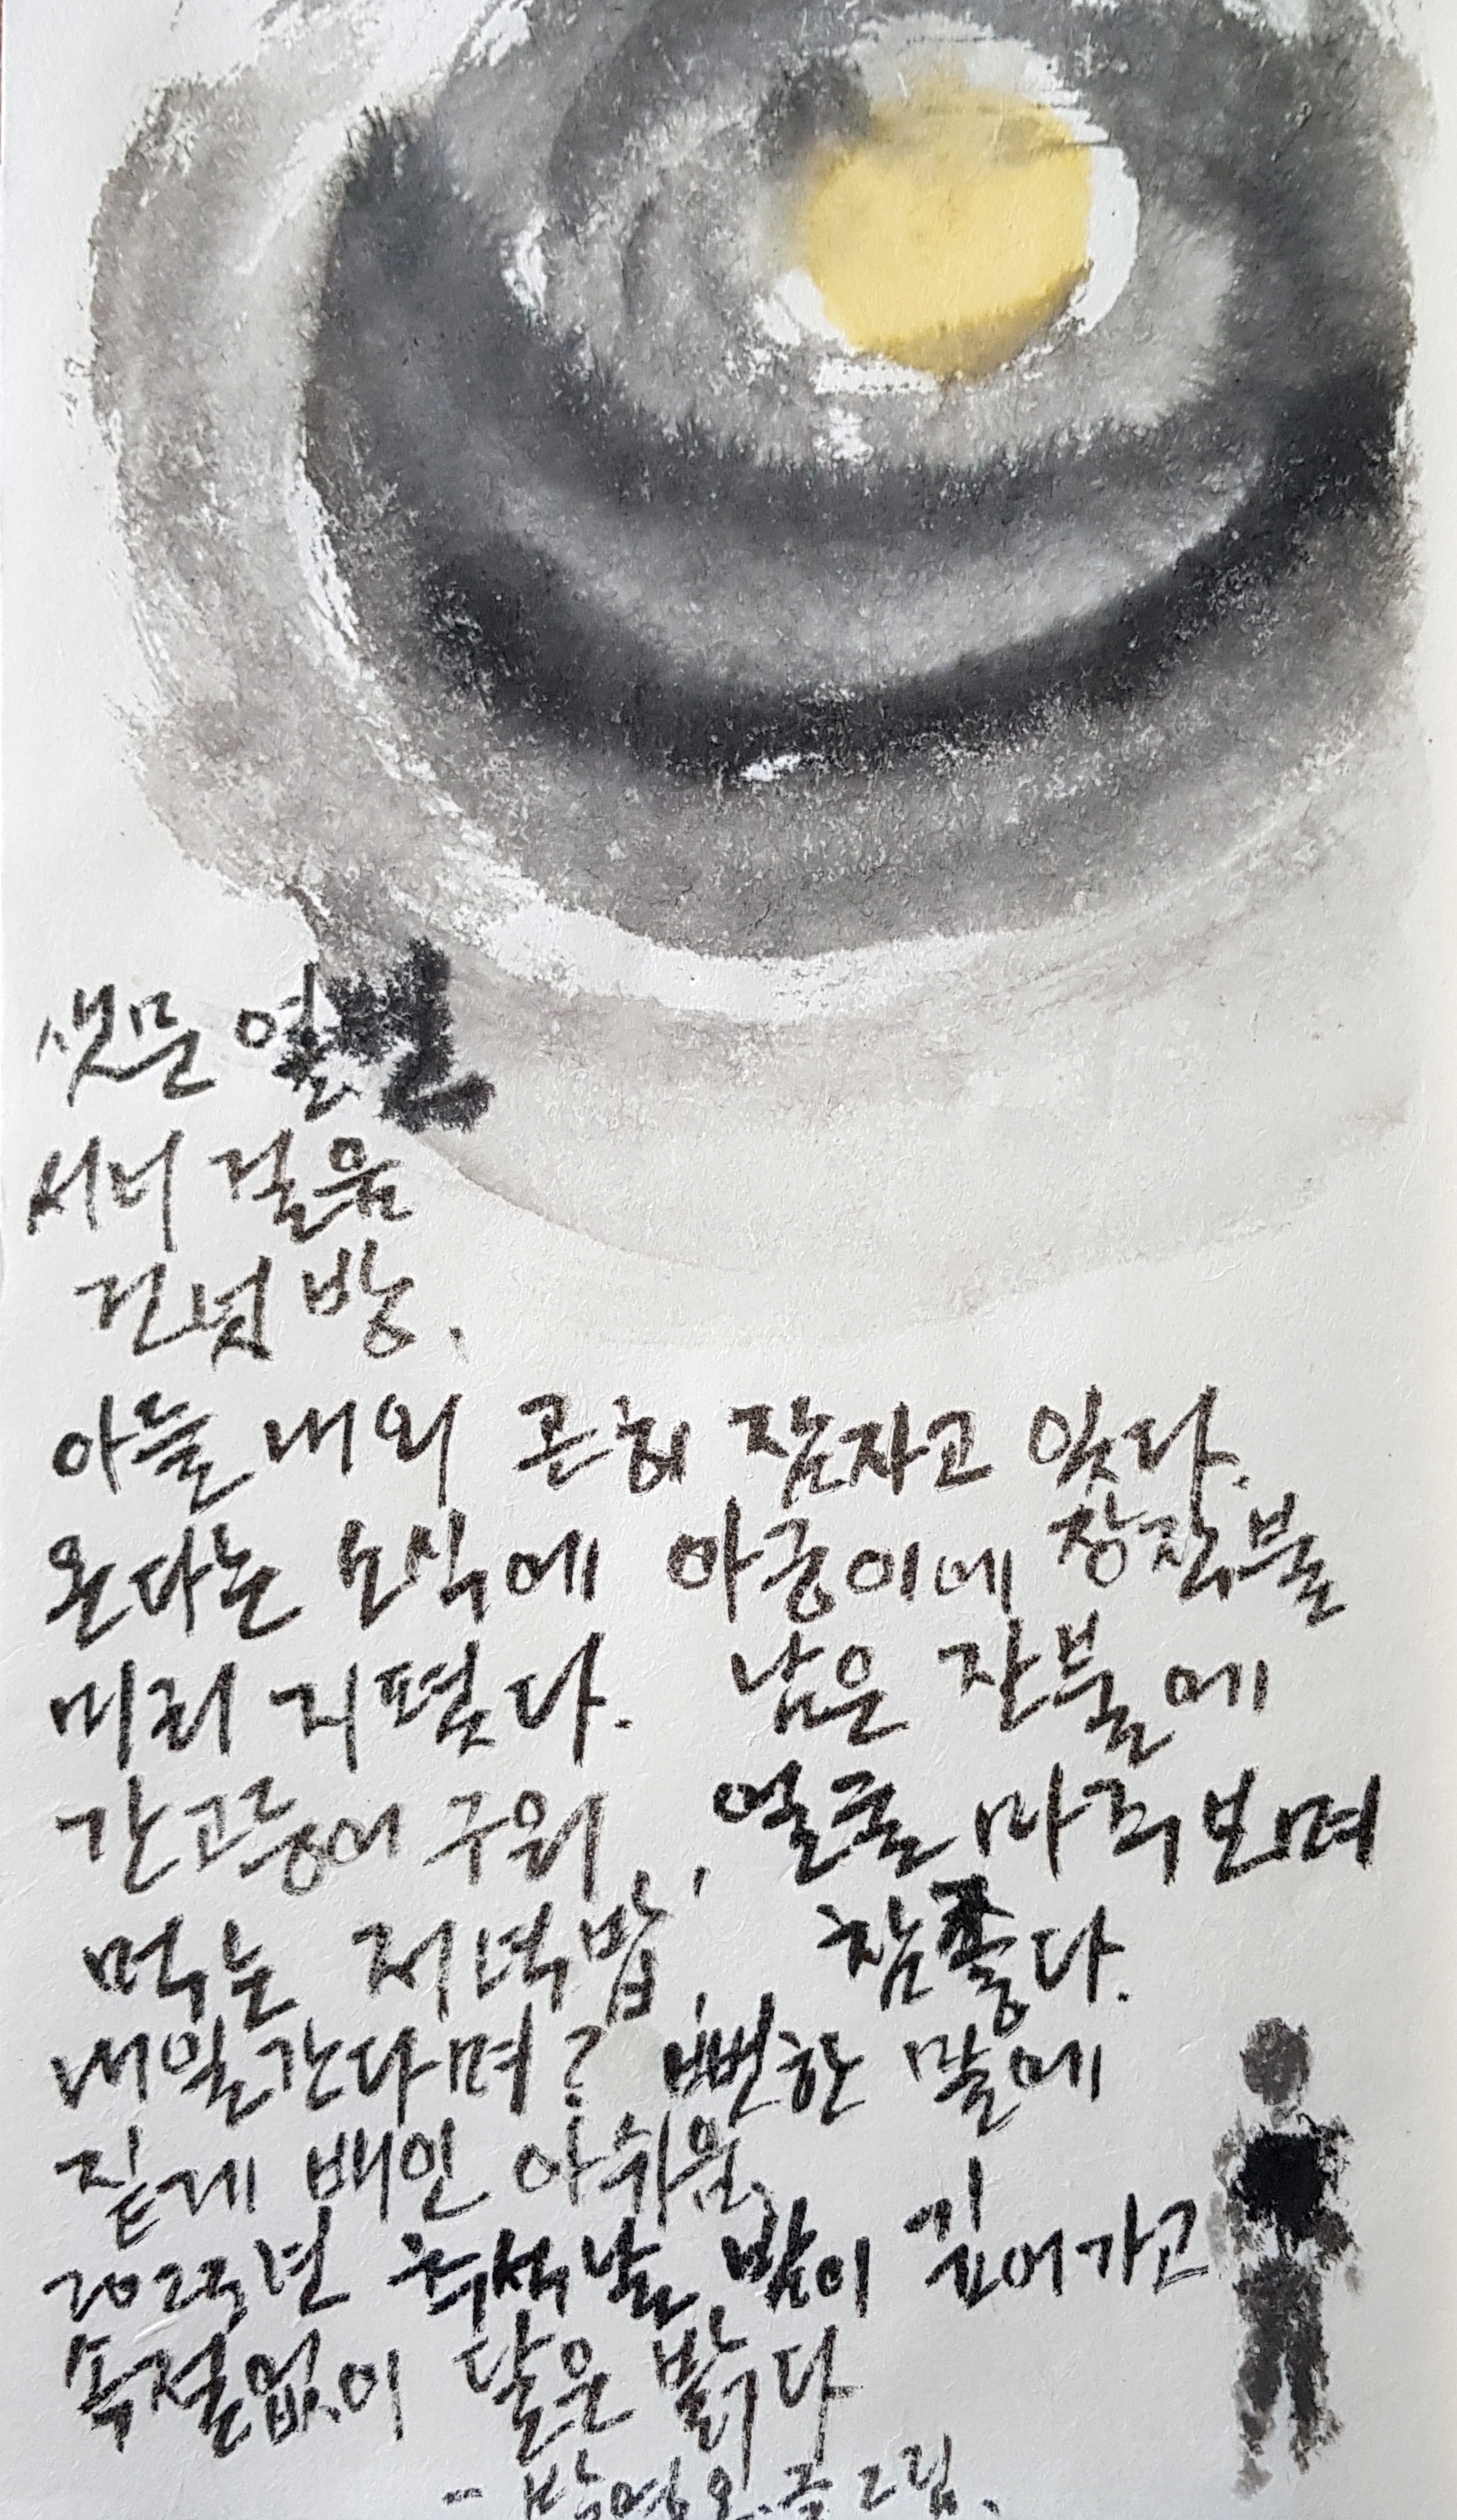 샛문 열면
서너 걸음
건넌방.
아들 내외 곤히 잠자고 있다.
온다는 소식에 아궁이에 장작불
미리 지폈다. 남은 잔불에
간고등어 구워, 얼굴 마주보며
먹는 저녁밥, 참 좋다.
내일 간다며? 뻔한 말에
짙게 배인 아쉬움.
2023년 추석날 밤이 깊어가고
속절없이 달은 밝다
글그림.